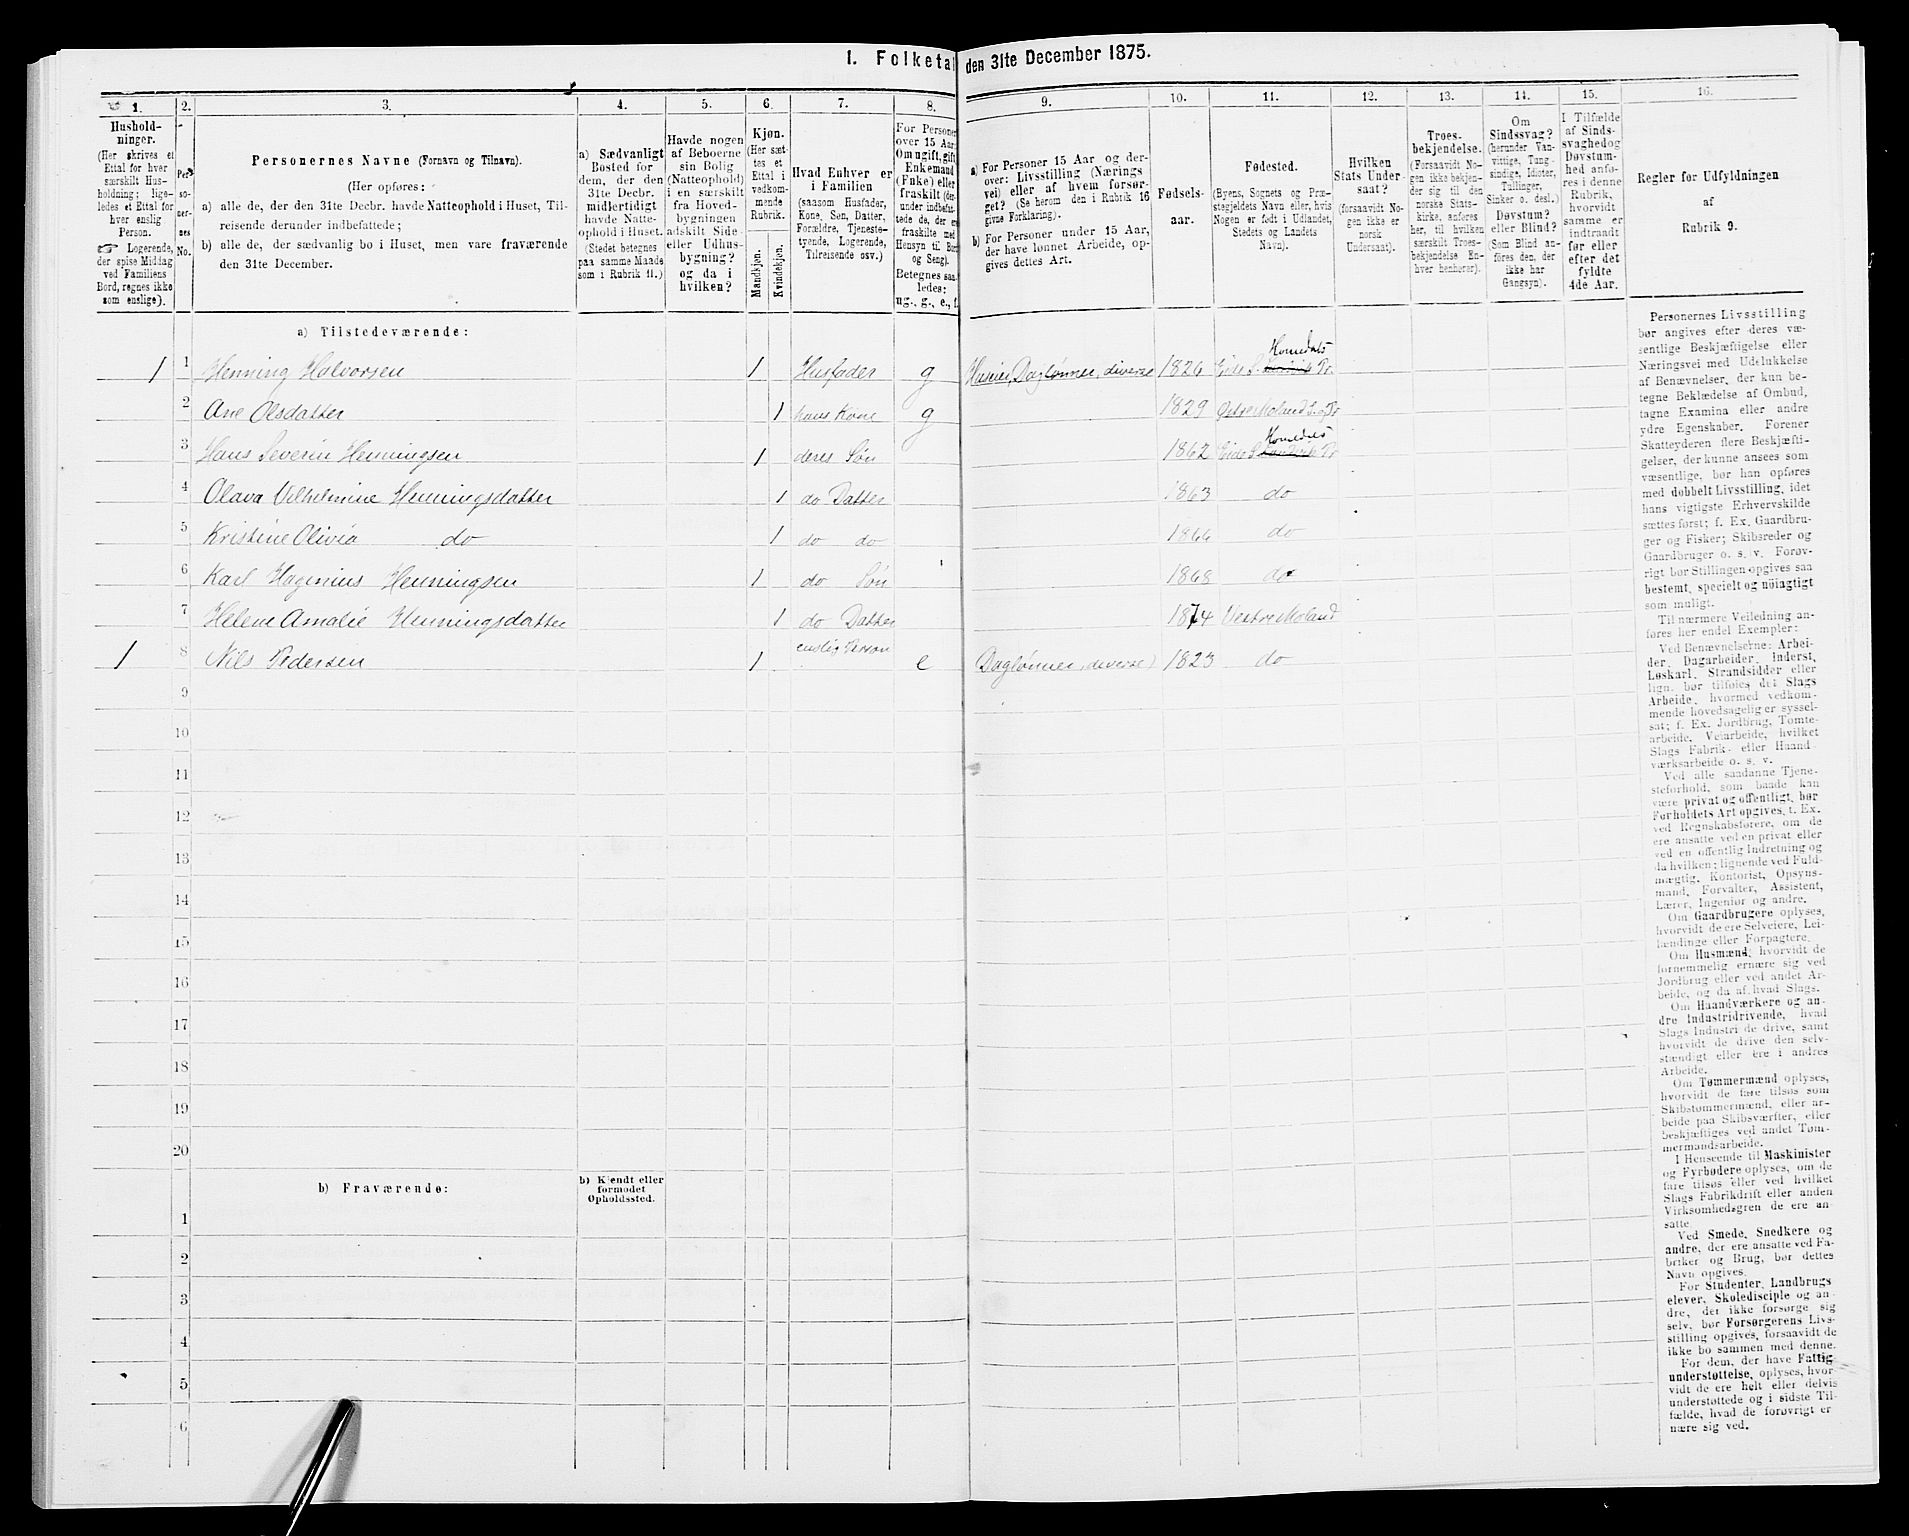 1. Folketal den 31te December 1875.
1. 2. 3. 4. 5. 6. 7. 8. 9. 10. 11. 12. 13. 14. 15. 16.
Hushold-
ninger.
(Her skrives et
Ettal for hver
særskilt Hus-
holdning; lige-
ledes et Ettal for
hver enslig
Person.
☞ Logerende,
der spise Middag
ved Familiens
Bord, regnes ikke
som enslige).
Per-
so-
ner-
nes
No.
Personernes Navne (Fornavn og Tilnavn).
(Her opføres:
a) alle de, der den 31te Decbr. havde Natteophold i Huset, Til-
reisende derunder indbefattede;
b) alle de, der sædvanlig bo i Huset, men vare fraværende
den 31te December.
a) Sædvanligt
Bosted for
dem, der den
31te Decbr.
midlertidigt
havde Natte-
ophold i Huset.
(Stedet betegnes
paa samme Maade
som i Rubrik 11.)
Havde nogen
af Beboerne
sin Bolig
(Natteophold)
i en særskilt
fra Hoved-
bygningen
adskilt Side-
eller Udhus-
bygning?
og da i
hvilken?
Kjøn.
(Her sæt-
tes et
Ettal i
vedkom-
mende
Rubrik.
Mandkjøn.
Kvindekjøn.
Hvad Enhver er
i Familien
(saasom Husfader,
Kone, Søn, Datter,
Forældre, Tjeneste-
tyende, Logerende,
Tilreisende osv.)
For Personer
over 15 Aar:
Om ugift, gift,
Enkemand
(Enke) eller
fraskilt (der-
under indbefat-
tede de, der ere
fraskilte med
Hensyn til Bord
og Seng).
Betegnes saa-
ledes:
ug., g., e., f.
a) For Personer 15 Aar og der-
over: Livsstilling (Nærings-
vei) eller af hvem forsør-
get? (Se herom den i Rubrik 16
givne Forklaring).
b) For Personer under 15 Aar,
der have lønnet Arbeide, op-
gives dettes Art.
Fødsels-
aar.
Fødested.
(Byens, Sognets og Præ-
stegjeldets Navn eller, hvis
Nogen er født i Udlandet,
Stedets og Landets
Navn).
Hvilken
Stats Under-
saat?
(forsaavidt No-
gen ikke er
norsk
Undersaat).
Troes-
bekjendelse.
(Forsaavidt No-
gen ikke bekjen-
der sig til den
norske Stats-
kirke, anføres
her, til hvilken
særskilt Troes-
bekjendelse En-
hver henhører).
Om
Sindssvag?
(herunder Van-
vittige, Tung-
sindige, Idioter,
Tullinger,
Sinker o. desl.)
Døvstum?
eller Blind?
(Som Blind an-
føres den, der
ikke har
Gangsyn).
I Tilfælde
af Sinds-
svaghed og
Døvstum-
hed anfø-
res i denne
Rubrik,
hvorvidt
samme er
indtraadt
før eller
efter det
fyldte
4de Aar.
Regler for Udfyldningen
af
Rubrik 9.
a) Tilstedeværende:
1 1 Henning Halvorsen 1 Husfader g Huseier, Daglønner, diverse 1826 Eide S. Homedals Pr.
2 Ane Olsdatter 1 hans Kone g 1829 Østre Moland S. og Pr
3 Hans Severin Henningsen 1 deres Søn 1862 Eide S Homedals Pr
4 Olava Vilhelmine Henningsdatter 1 do Datter 1863 do
5 Kristine Olivia do 1 do do 1866 do
6 Karl Hagenius Henningsen 1 do Søn 1868 do
7 Helene Amalie Henningsdatter 1 do Datter 1874 Vestre Moland
1 8 Nils Pedersen 1 enslig Person e Daglønner, diverse) 1823 do
9
10
11
12
13
14
15
16
17
18
19
20
b) Fraværende:
b) Kjendt eller
formodet
Opholdssted.
1
2
3
4
5
6
Personernes Livsstilling
bør angives efter deres væ-
sentlige Beskjæftigelse eller
Næringsvei med Udelukkelse
af Benævnelser, der kun be-
tegne Beklædelse af Ombud,
tagne Examina eller andre
ydre Egenskaber. Forener
Skatteyderen flere Beskjæfti-
gelser, der kunne ansees som
væsentlige, bør han opføres
med dobbelt Livsstilling, idet
hans vigtigste Erhvervskilde
sættes først; f. Ex. Gaardbru-
ger og Fisker; Skibsreder og
Gaardbruger o. s. v. Forøv-
rigt bør Stillingen opgives saa
bestemt, specielt og nöiagtigt
som muligt.
Til nærmere Veiledning an-
føres her endel Exempler:
Ved Benævnelserne: Arbei-
der, Dagarbeider, Inderst,
Løskarl, Strandsidder eller
lign. bør tilføies det Slags
Arbeide, hvormed vedkom-
mende hovedsagelig er syssel-
sat; f. Ex. Jordbrug, Tomte-
arbeide, Veiarbeide, hvilket
Slags Fabrik- eller Haand-
værksarbeide o. s. v.
Ved alle saadanne Tjene-
steforhold, som baade kan
være privat og offentligt, bør
Forholdets Art opgives, t. Ex.
ved Regnskabsførere, om de
ere ansatte ved en privat eller
ved en offentlig Indretning og
da hvilken; lignende ved Fuld-
mægtig, Kontorist, Opsyns-
mand, Forvalter, Assistent,
Lærer, Ingeniør og andre.
Om Gaardbrugere oplyses,
hvorvidt de ere Selveiere, Lei-
lændinge eller Forpagtere.
Om Husmænd, hvorvidt de
fornemmelig ernære sig ved
Jordbrug eller ved andet Ar-
beide, og da af hvad Slags.
Om Haandværkere og an-
dre Industridrivende, hvad
Slags Industri de drive, samt
hvorvidt de drive den selv-
stændigt eller ere i andres
Arbeide.
Om Tømmermænd oplyses,
hvorvidt de fare tilsøs som
Skibstømmermænd, eller ar-
beide paa Skibsværfter, eller
beskjæftiges ved andet Tøm-
mermandsarbeide.
I Henseende til Maskinister
og Fyrbødere oplyses, om de
fare tilsøs eller ved hvilket
Slags Fabrikdrift eller anden
Virksomhedsgren de ere an-
satte.
Ved Smede, Snedkere og
andre, der ere ansatte ved Fa-
briker og Brug, bør dettes
Navn opgives.
For Studenter, Landbrugs-
elever, Skoledisciple og an-
dre, der ikke forsørge sig
selv, bør Forsørgerens Livs-
stilling opgives, forsaavidt de
ikke bo sammen med denne.
For dem, der have Fattig-
understøttelse, oplyses, hvor-
vidt de ere helt eller delvis
understøttede og i sidste Til-
fælde, hvad de forøvrigt er-
nære sig ved.